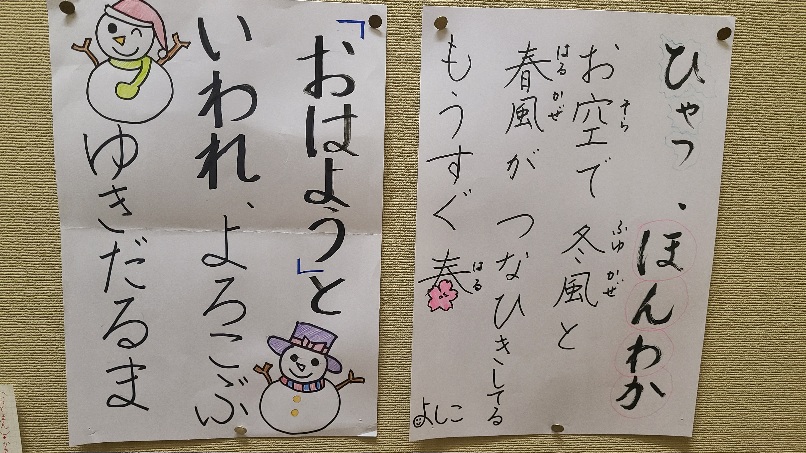 ひゃっ、ほんわか
お空で 冬風と
そら
ふゆ かぜ
春風が つなひきしてる
はる かぜ
もうすぐ 春
はる
よしこ
「おはよう」と
いわれ、よろこぶ
ゆきだるま